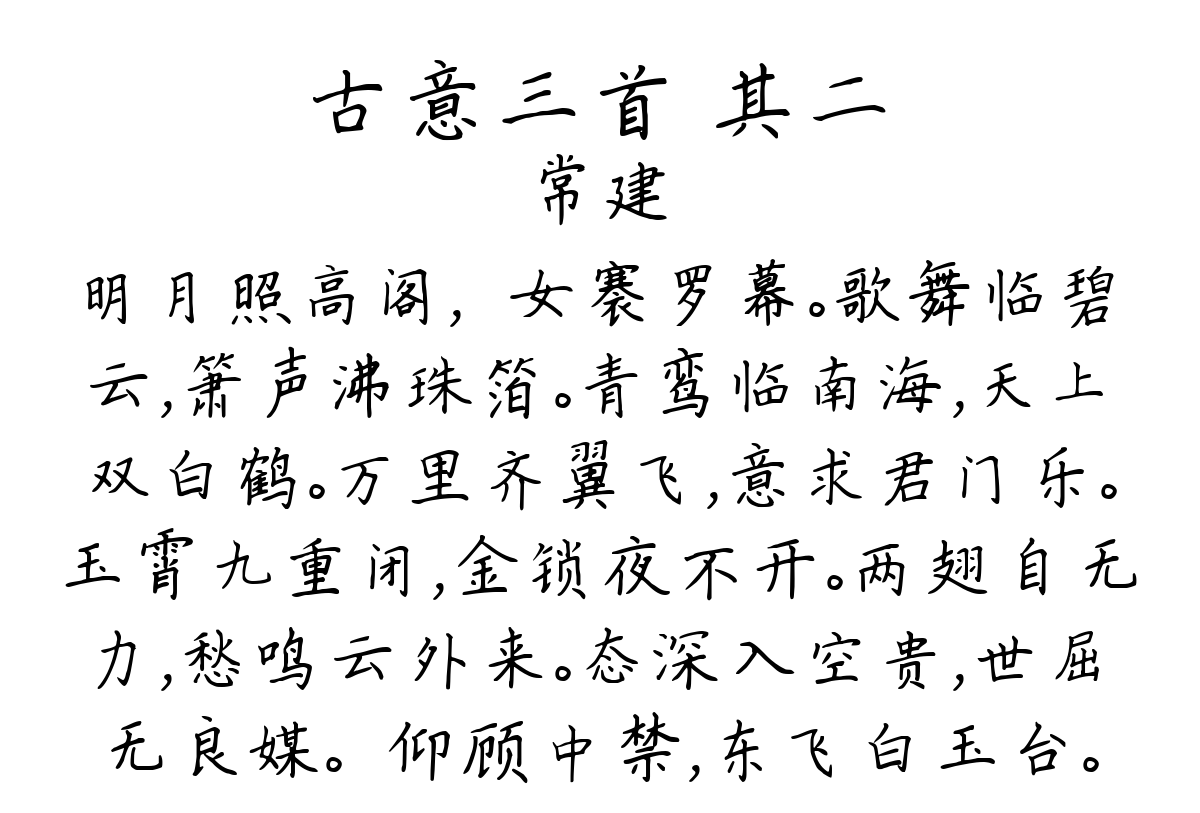 古意三首 其二
常建
明月照高阁，女褰罗幕。歌舞临碧
云,箫声沸珠箔。青鸾临南海,天上
双白鹤。万里齐翼飞,意求君门乐。
玉霄九重闭,金锁夜不开。两翅自无
力,愁鸣云外来。态深入空贵,世屈
无良媒。仰顾中禁,东飞白玉台。